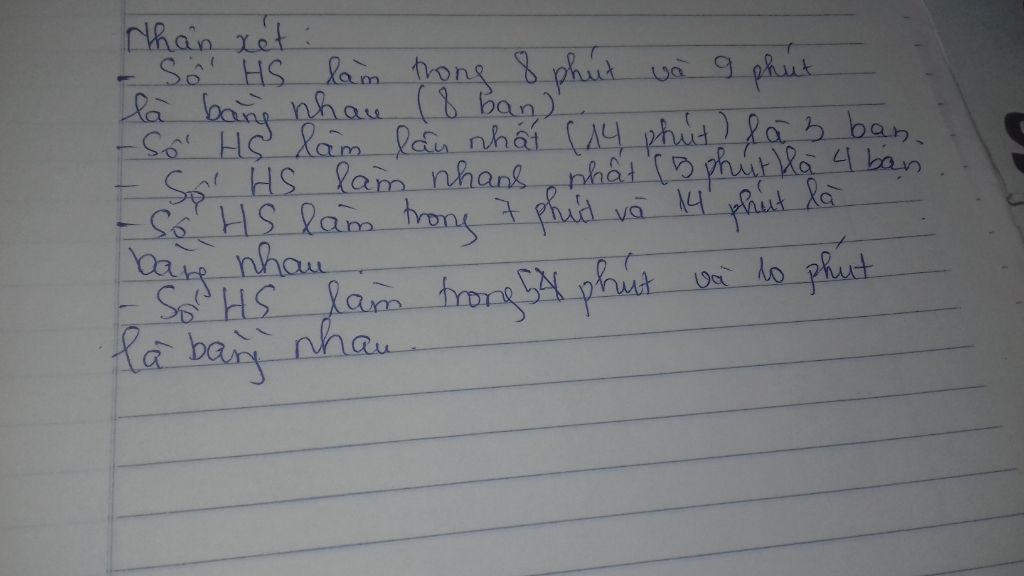 Nhận xét:
- Số HS làm trong 8 phút và 9 phút
là bằng nhau (8 bạn).
- Số HS làm lâu nhất (14 phút) là 3 bạn.
- Số HS làm nhanh nhất (5 phút) là 4 bạn
- Số HS làm trong 7 phút và 14 phút là
bằng nhau.
- Số HS làm trong 5 phút và 10 phút
là bằng nhau.